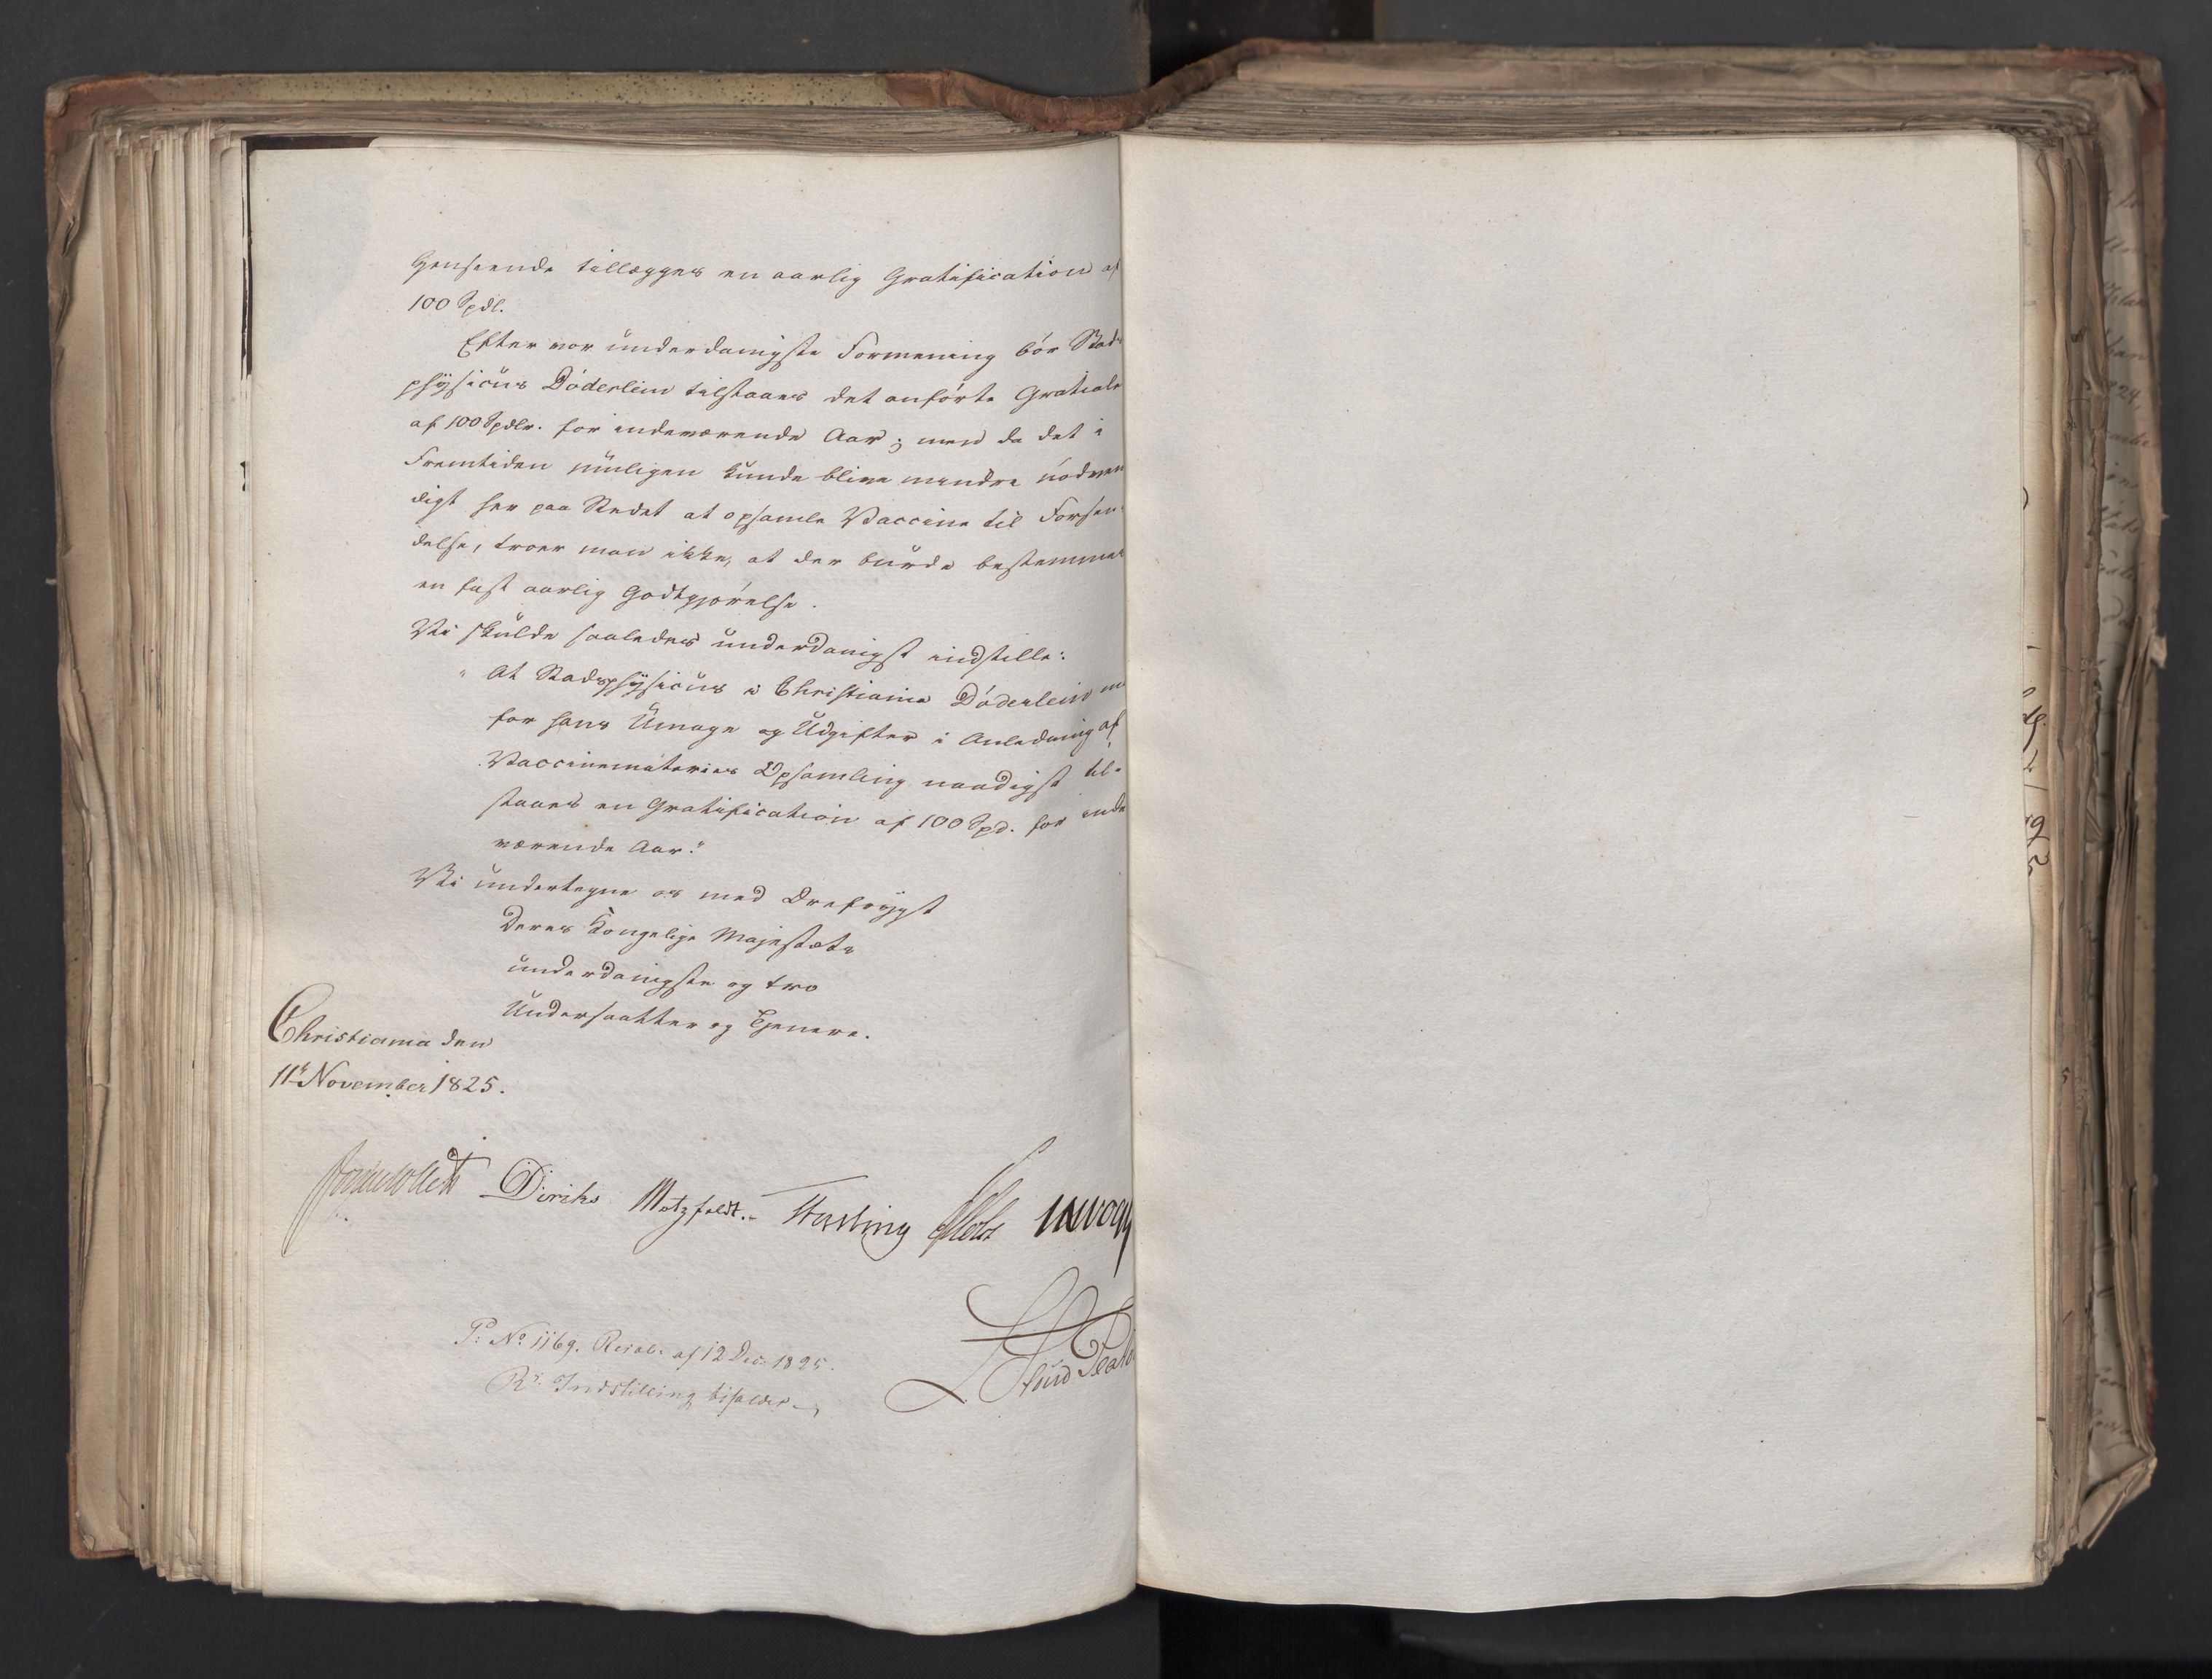 Henseende tillægges en aarlig Gratification af
100 Spdl.
Efter vor underdanigste Formening bör Stads
physicus Döderlein tilstaaes det anförte Gratiale
af 100 Spdlr. for indeværende Aar; men da det i
Fremtiden muligen kunde blive mindre nödven
digt her paa Stedet at opsamle Vaccine til Forsen-
delse, troer man ikke, at der burde bestemmes
en fast aarlig Godtgjörelse.
Vi skulde saaledes underdanigst indstille:
"At Stadsphysicus i Christiania Döderlein
for hans Umage og Udgifter i Anledning af
Vaccinemateries Opsamling naadigst til-
staaes en Gratification af 100 Spd. for inde
værende Aar."
Vi undertegne os med Ærefrygt
Deres Kongelige Majestæts
underdanigste og tro
Undersaatter og Tjenere.
Christiania den
11te November 1825.
Jonas Collett Diriks Motzfeldt. Fasting Holst
P: No 1169. Resol: af 12 Dec. 1825.
Rs. Indstilling bifaldes